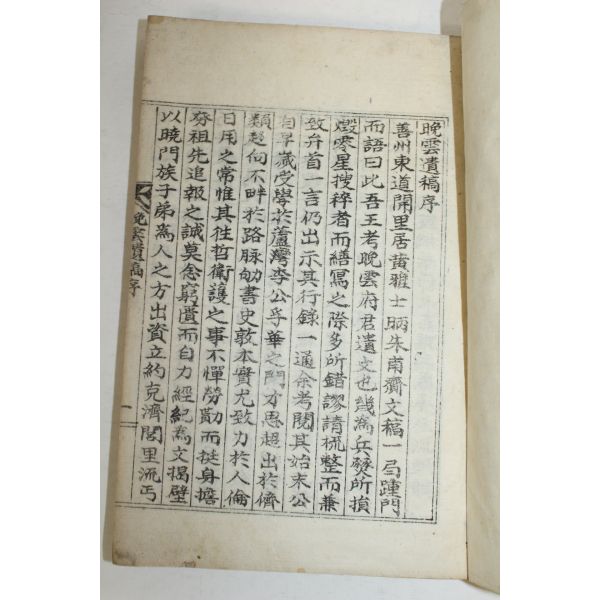 晚雲遺稿序
善州東道開里居黃雅士昞朱甫齎文稿一局踵門
而語曰此吾王考晚雲府君遺文也幾爲兵燹所損
燬零星搜稡者而繕寫之際多所錯謬請梳整而兼
致弁首一言仍出示其行錄一通余考閱其始末公
自早歲受學於蘆灣李公孚華之門才思超出於儕
類趍向不畔於路脉劬書史敦本實尤致力於人倫
日用之常惟其往哲衛護之事不憚勞勩而挺身擔
夯祖先追報之誠莫念窮匱而自力經紀爲文揭壁
以曉門族子弟爲人之方出資立約克濟閭里流丐
晚雲遺稿序
一